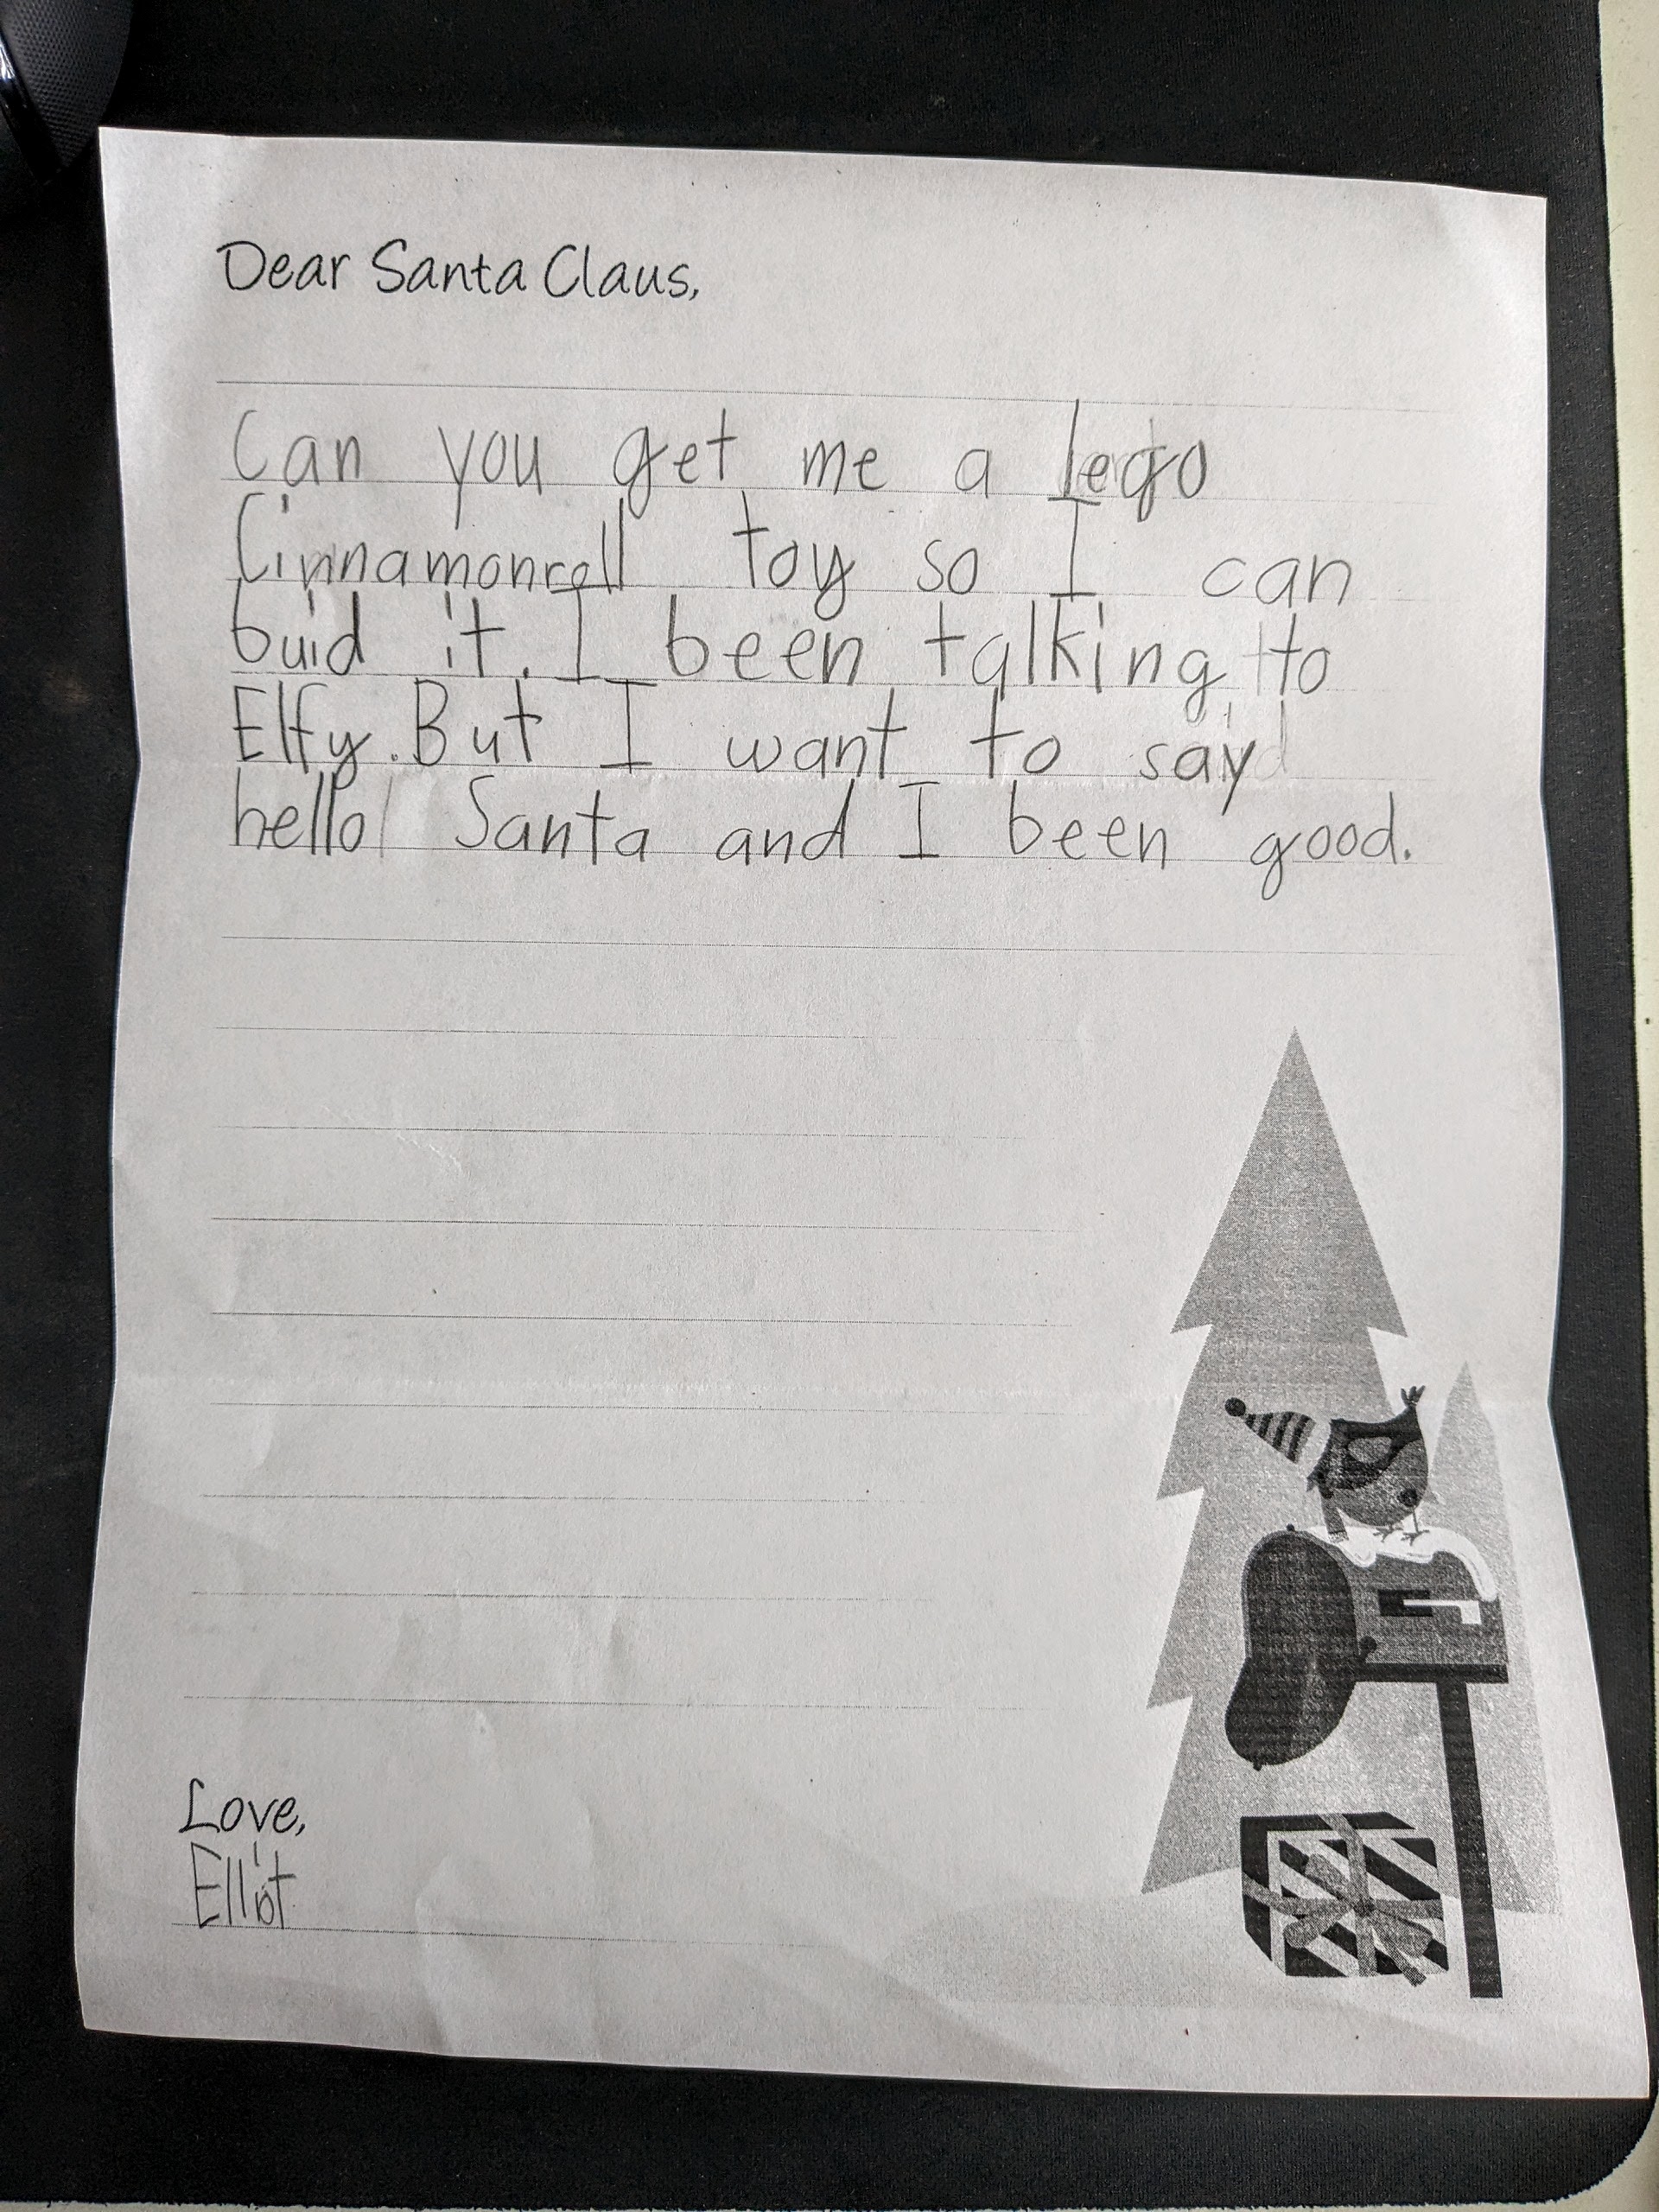 Dear Santa Claus,
Can you get me a lego
Cinnamonroll toy so I can
buid it. I been talking to
Elfy. But I want to say
hello Santa and I been good.
Love,
Elliot